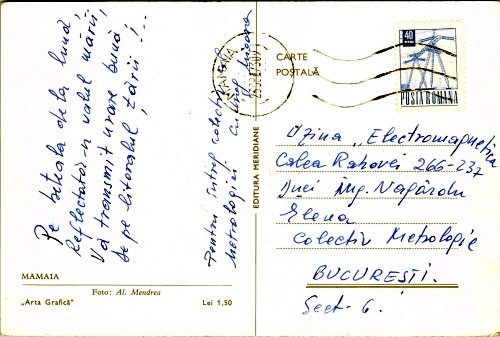 Pe betaia de la lună,
Reflectată-n valul mării,
Vă transmit urare bună
De pe litoralul țării!...
Pentru întreg colectivul
Metrologiei.
MAMAIA
Foto: Al. Mendrea
„Arta Grafică”
Lei 1,50
EDITURA MERIDIANE
CARTE
POȘTALĂ
MAMAIA
40
POSTA ROMANA
Uzina „Electromagnetica
Calea Rahovei 266-237
Dnei ing. Nagărolu
Elena
Colectiv Metrologie
BUCUREȘTI.
Sect-6.